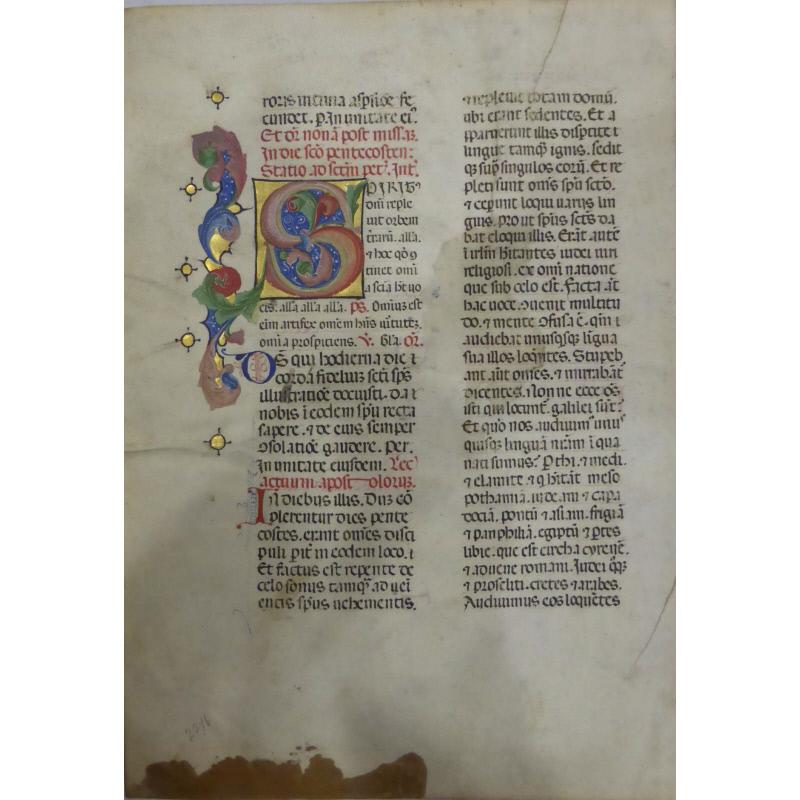 roris intima aspersiõe fe
cundet. p. In unitate ei᾽.
Et dr̃ non a post missaz.
In die scõ pentecosten:
Statio ad sctm̃ pet᷒. Int᷒.
SPIRIT᾽
dñi reple
uit orbem
terrarũ. alla.
⁊ hoc qđ 9
tinet omĩ
a sciã h̃t uo
cis. alla alla alla. ps̃. Omniũs est
eim artifex omẽm hñs uĩtutẽ.
omĩa prospiciens. V. Gla. Or̃.
DS qui hodierna die
corda fideliuz scti sp̃s
illustratiõe docuisti. da
nobis ĩ eodem spũ recta
sapere. ⁊ de eius semper
9solatiõe gaudere. per.
In unitate eiusdem. Lec̃
actuum apostolorũz.
In diebus illis. Duz cõ
plerentur dies pente
costes. erant omẽs disci
puli pit̃ in eodem loco.
Et factus est repente de
celo sonus tamq̃ aduei
entis sp̃us uehementis.
⁊ repleuit totam domũ.
ubi erant sedentes. Et a
pparuerunt illis disp̃tite
lingue tamq̃ ignis. sedit
q̃ sup̃ singulos eorũ. Et re
pleti sunt oms̃ spũ scto.
⁊ ceperunt loqui uarijs lin
guis. prout sp̃us scts̃ da
bat eloqui illis. Erãt autẽ
ĩ irlm̃ hĩtantes iudei uiri
religiosi. ex omĩ natione
que sub celo est. Facta aũt
hac uoce. 9uenit multitu
do. ⁊ mente 9fusa ẽ. qm̃
audiebat unusqsq̃ lĩgua
sua illos loqñtes. Stupeb
ant aũt omẽs. ⁊ mirabãt
dicentes. Nonne ecce oẽs
isti qui locunt᷒. galilei sũt?
Et quõ nos audiuim᾽ unus
quisq̃ linguã nrãm ĩ qua
nati sumus? Pthi. ⁊ medi.
⁊ elamite ⁊ q̃ hĩtãt meso
pothamiã. iudeam ⁊ capa
dociã. pontũ ⁊ asiam. frigiã
⁊ panphiliã. egiptũ ⁊ p̃tes
libie. que est circha cyrenẽ.
⁊ aduene romani. Iudei q̃q̃
⁊ proseliti. cretes ⁊ arabes.
Audiuimus eos loquẽtes